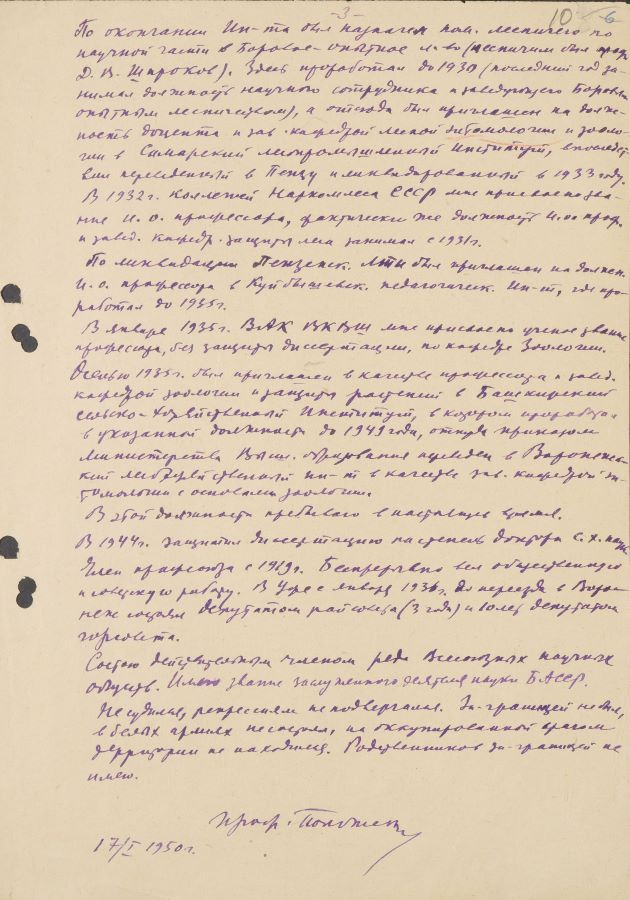 -3-
10 6
По окончании Ин-та был назначен пом. лесничего по
научной части в Боровое-опытное л-во (лесничим был проф.
Д. В. Широков). Здесь проработал до 1930 (последний год за-
нимал должность научного сотрудника и заведующего Боровым
опытным лесничеством), а отсюда был приглашен на долж-
ность доцента и зав. кафедрой лесной энтомологии и зооло-
гии в Самарский лесопромышленный Институт, впоследст-
вии переведенный в Пензу и ликвидированный в 1933 году.
В 1932 г. коллегией Наркомлеса СССР мне присвоено зва-
ние и. о. профессора, фактически же должность и.о. проф.
и завед. кафедр. защиты леса занимал с 1931 г.
По ликвидации Пензенск. ЛТИ был приглашен на должн.
и. о. профессора в Куйбышевск. педагогическ. Ин-т, где про-
работал до 1935 г.
В январе 1935 г. ВАК ВКВШ мне присвоено ученое звание
профессора, без защиты диссертации, по кафедре Зоологии.
Осенью 1935 г. был приглашен в качестве профессора и завед.
кафедрой зоологии и защиты растений в Башкирский
сельско-хозяйственный Институт, в котором проработал
в указанной должности до 1949 года, откуда приказом
Министерства Высш. образования переведен в Воронежс-
кий лесохозяйственный ин-т в качестве зав. кафедрой эн-
томологии с основами зоологии.
В этой должности пребываю в настоящее время.
В 1944 г. защитил диссертацию на степень доктора с. х. наук.
Член профсоюза с 1919 г. Беспрерывно вел общественную
и советскую работу. В Уфе с января 1936 г. до переезда в Воро-
неж состоял депутатом райсовета (3 года) и 10 лет депутатом
горсовета.
Состою действительным членом ряда Всесоюзных научных
обществ. Имею звание заслуженного деятеля науки БАССР.
Не судился, репрессиям не подвергался. За-границей не был,
в белых армиях не состоял, на оккупированной врагом
территории не находился. Родственников за-границей не
имею.
Проф.
17/I 1950 г.